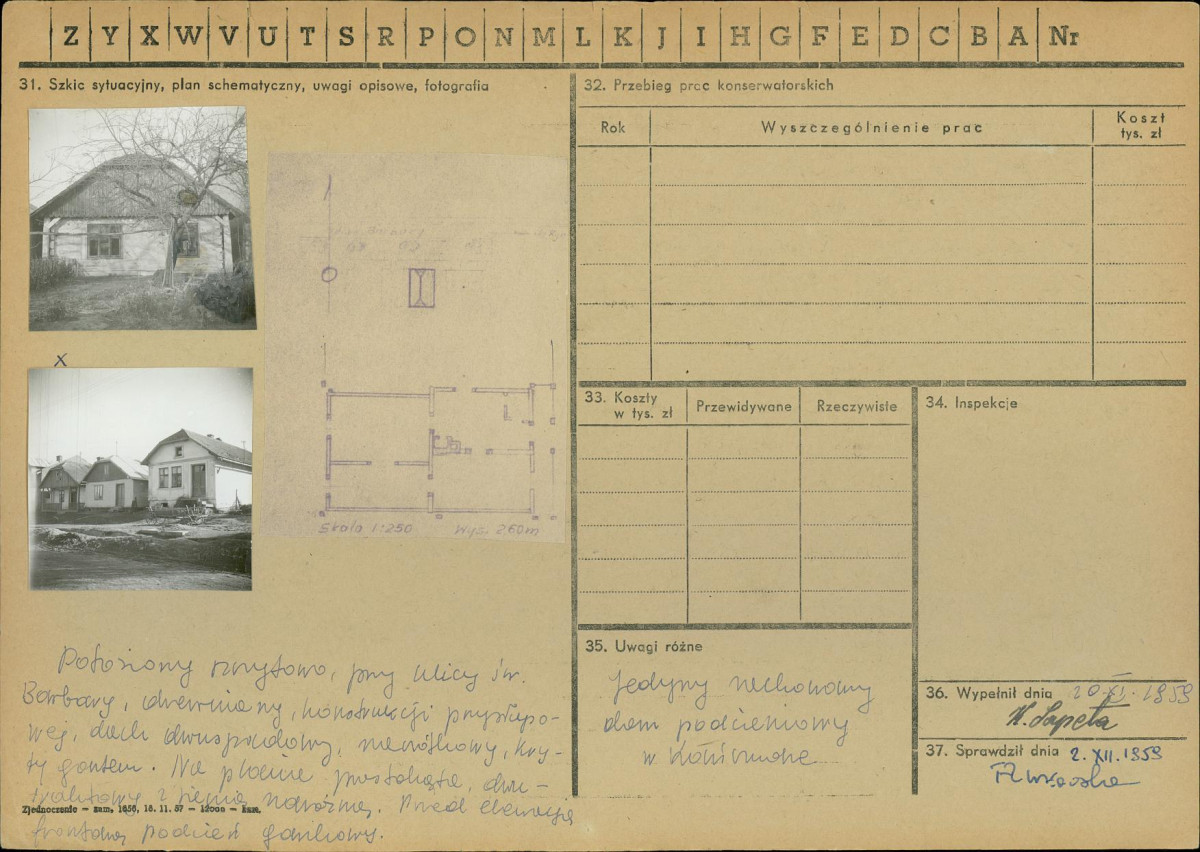 Z Y X W V U T S R P O N M L K J I H G F E D C B A Nr
31. Szkic sytuacyjny, plan schematyczny, uwagi opisowe, fotografia
x
Skala 1:250 Wys. 2,60m
Położony szczytowo, przy ulicy św.
Barbary, drewniany, konstrukcji przysłupo-
wej, dach dwuspadowy, naczółkowy, kry-
ty gontem. Na planie prostokąta, dwu-
traktowy z sienią narożną. Przed elewacją
frontową podcień gankowy.
Zjednoczenie — zam. 1656, 18. 11. 57 — 12000 — kam.
32. Przebieg prac konserwatorskich
Rok
Wyszczególnienie prac
Koszt
tys. zł
33. Koszty
w tys. zł
Przewidywane
Rzeczywiste
34. Inspekcje
35. Uwagi różne
Jedyny zachowany
dom podcieniowy
w
36. Wypełnił dnia 20 XI. 1959
W. Sapeta
37. Sprawdził dnia 2. XII. 1959